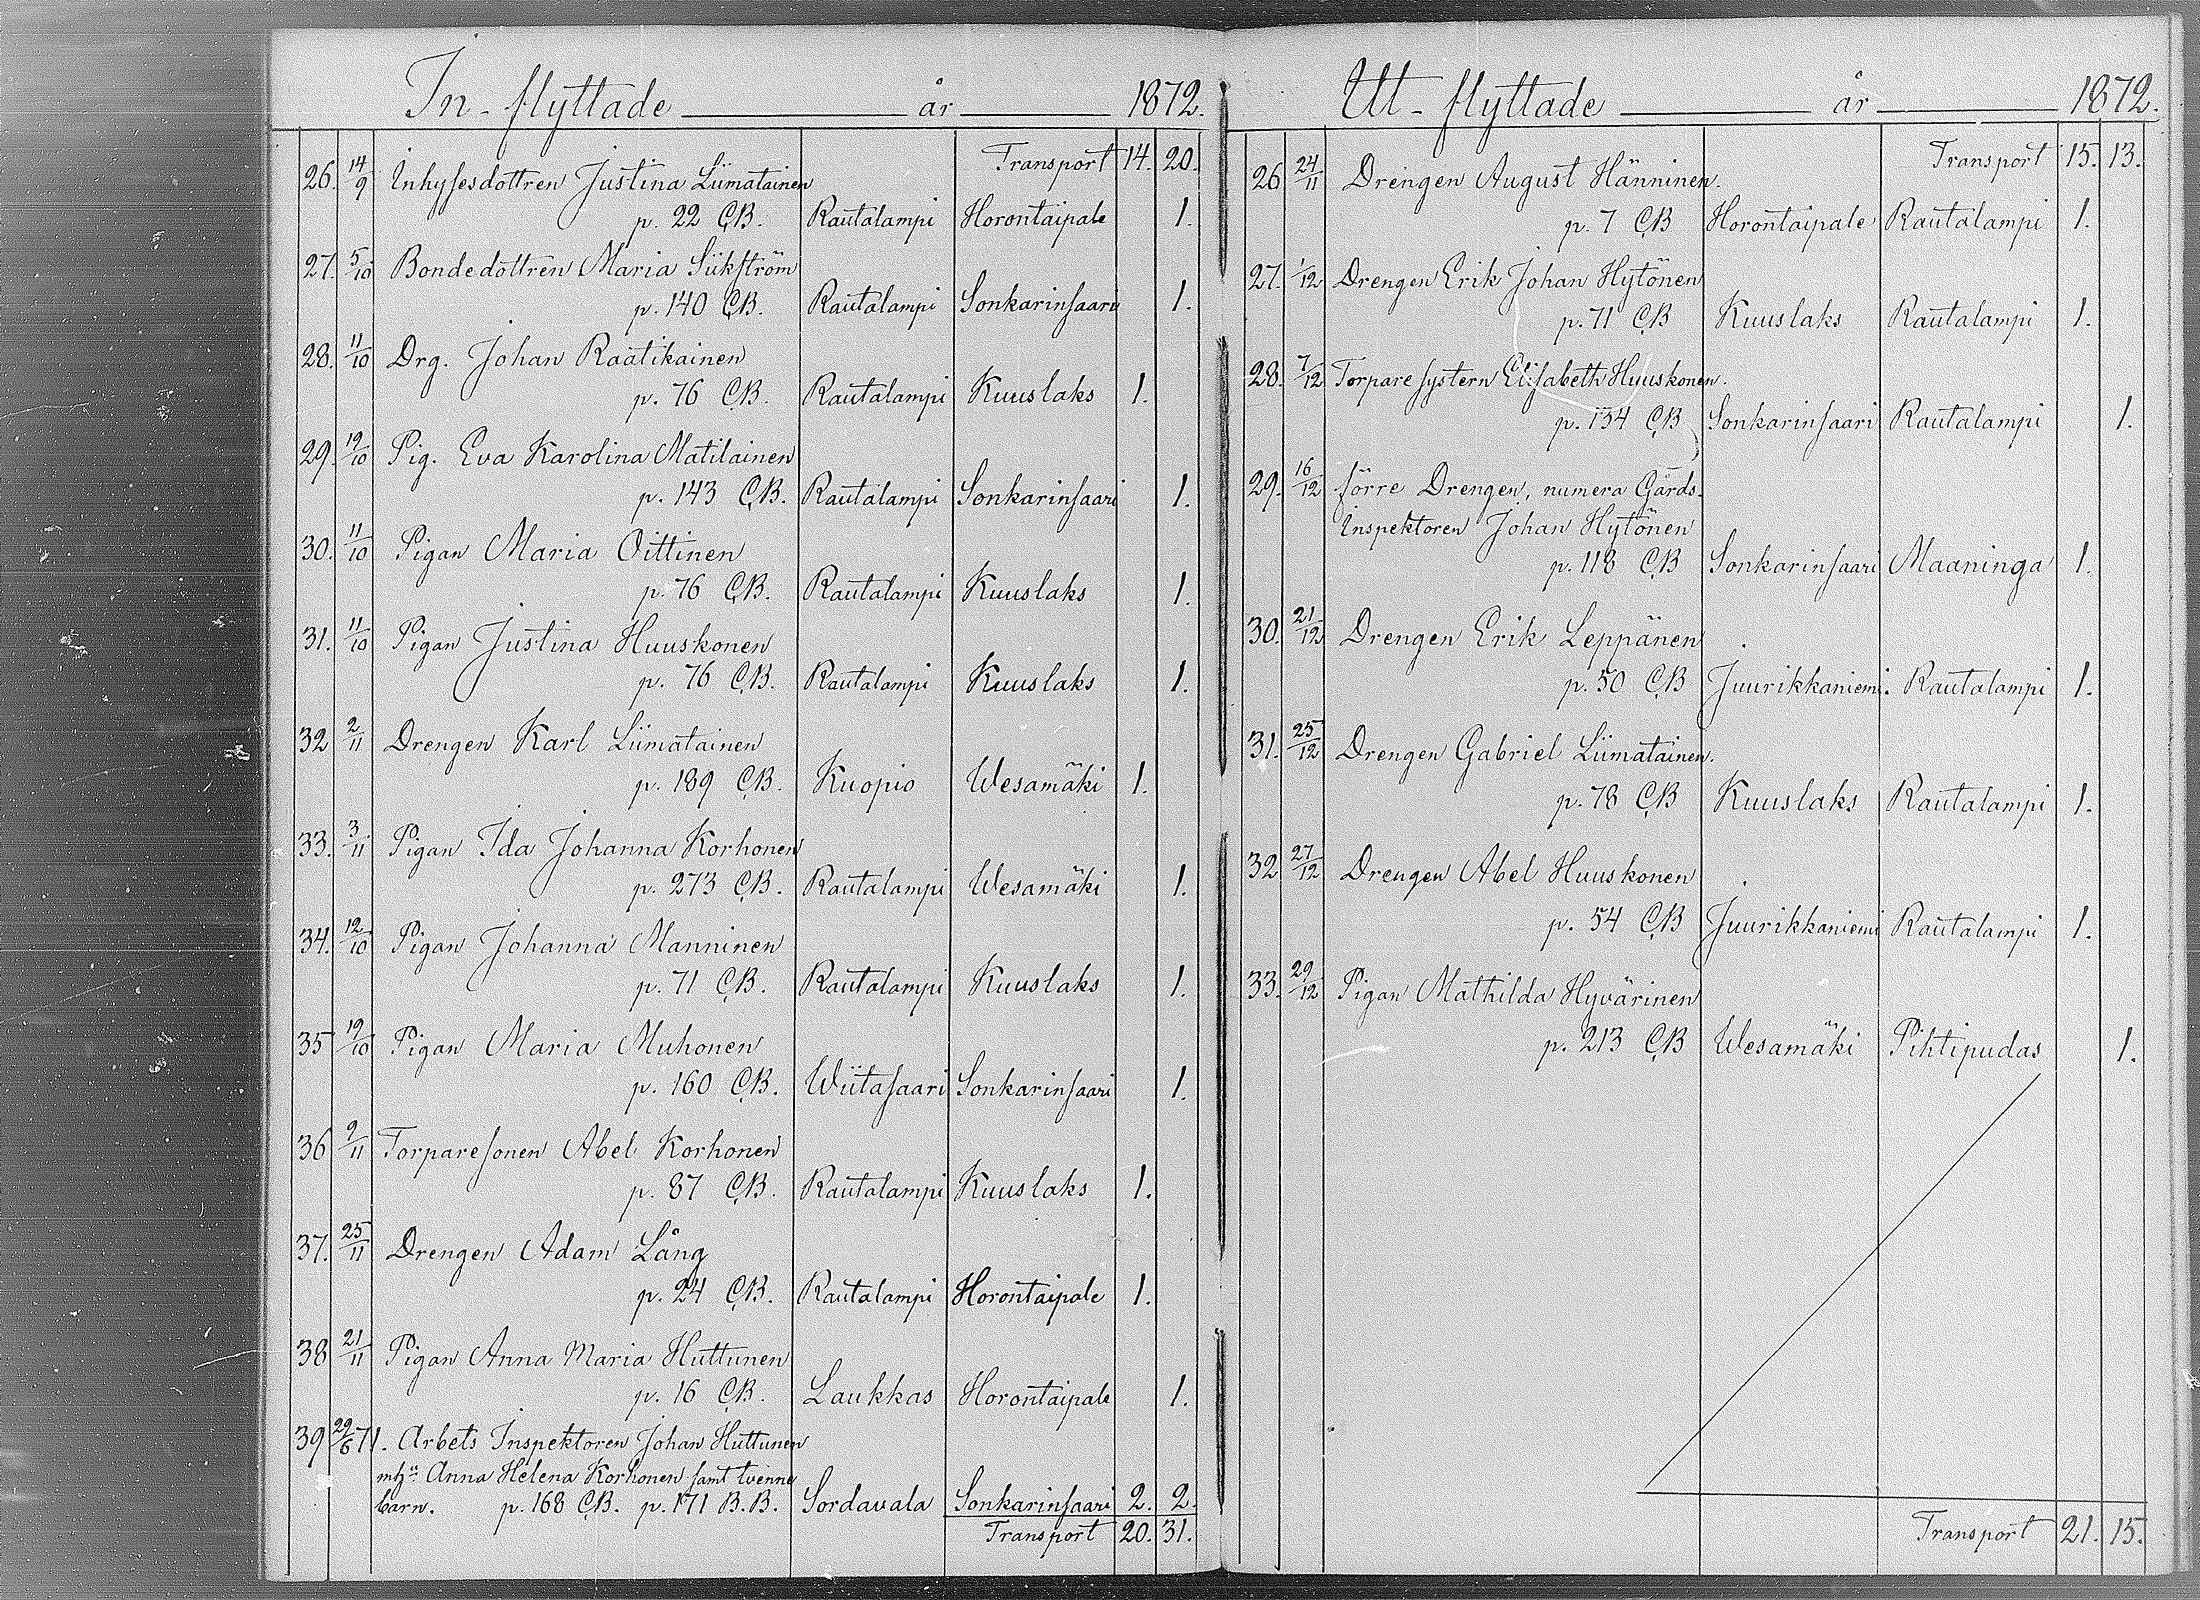 In-flyttade år 1872.
Transport 14. 20.
26. 14/9 Inhysesdottren Justina Liimatainen
p. 22 C.B. Rautalampi Horontaipale 1.
27. 5/10 Bondedottren Maria Siikström
p. 140 C.B. Rautalampi Sonkarinsaari 1.
28. 11/10 Drg. Johan Raatikainen
p. 76 C.B. Rautalampi Kuuslaks 1.
29. 19/10 Pig. Eva Karolina Matilainen
p. 143 C.B. Rautalampi Sonkarinsaari 1.
30. 11/10 Pigan Maria Oittinen
p. 76 C.B. Rautalampi Kuuslaks 1.
31. 11/10 Pigan Justina Huuskonen
p. 76 C.B. Rautalampi Kuuslaks 1.
32 2/11 Drengen Karl Liimatainen
p. 189 C.B. Kuopio Wesamäki 1.
33. 3/11 Pigan Ida Johanna Korhonen
p. 273 C.B. Rautalampi Wesamäki 1.
34. 12/10 Pigan Johanna Manninen
p. 71 C.B. Rautalampi Kuuslaks 1.
35 19/10 Pigan Maria Muhonen
p. 160 C.B. Wiitasaari Sonkarinsaari 1.
36 9/11 Torparesonen Abel Korhonen
p. 87 C.B. Rautalampi Kuuslaks 1.
37. 25/11 Drengen Adam Lång
p. 24 C.B. Rautalampi Horontaipale 1.
38 21/11 Pigan Anna Maria Huttunen
p. 16 C.B. Laukkas Horontaipale 1.
39 29/6 71. Arbets Inspektoren Johan Huttunen
mh:u Anna Helena Korhonen samt tvenne
barn. p. 168 C.B. p. 171 B.B. Sordavala Sonkarinsaari 2. 2.
Transport 20. 31.
Ut-flyttade år 1872.
Transport 15. 13.
26 24/11 Drengen August Hänninen.
p. 7 C.B Horontaipale Rautalampi 1.
27. 1/12 Drengen Erik Johan Hytönen
p. 71 C.B Kuuslaks Rautalampi 1.
28. 7/12 Torparesystern Elisabeth Huuskonen.
p. 134 C.B Sonkarinsaari Rautalampi 1.
29. 16/12 förre Drengen, numera Gårds-
Inspektoren Johan Hytönen
p. 118 C.B Sonkarinsaari Maaninga 1.
30. 21/12 Drengen Erik Leppänen
p. 50 C.B Juurikkaniemi. Rautalampi 1.
31. 25/12 Drengen Gabriel Liimatainen.
p. 78 C.B Kuuslaks Rautalampi 1.
32 27/12 Drengen Abel Huuskonen
p. 54 C.B Juurikkaniemi Rautalampi 1.
33. 29/12 Pigan Mathilda Hyvärinen
p. 213 C.B Wesamäki Pihtipudas 1.
Transport 21. 15.